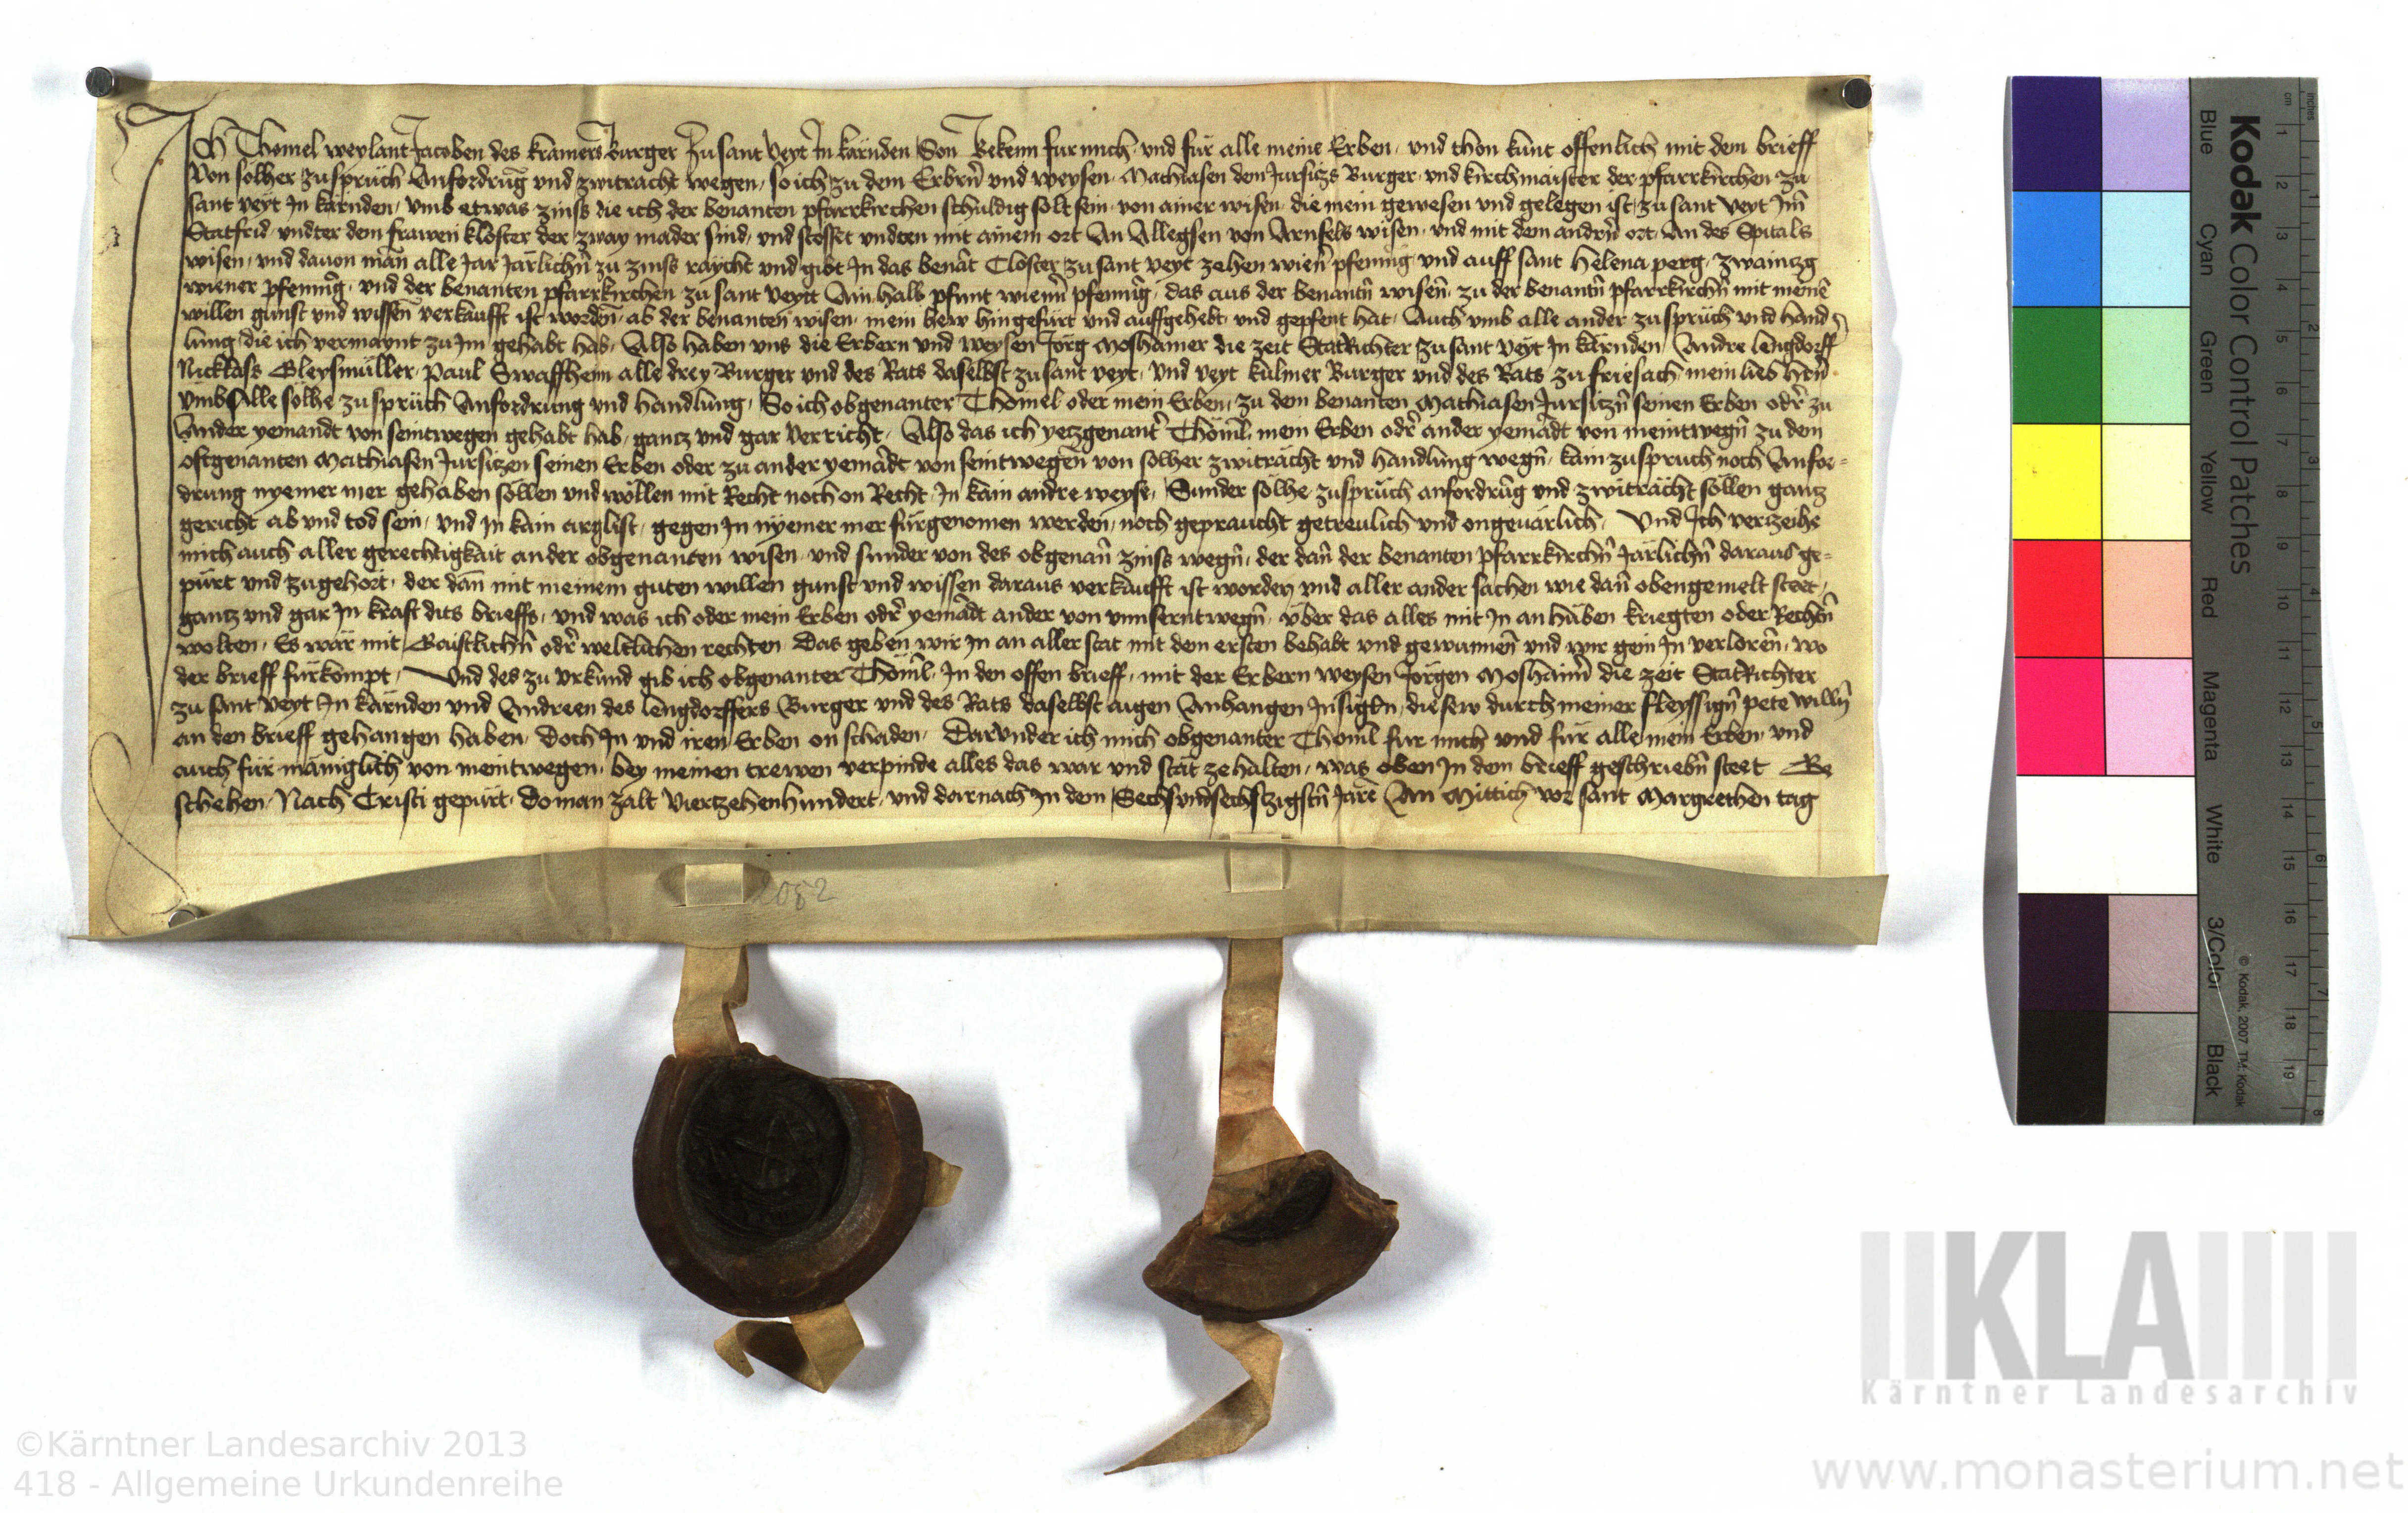 Ich Thomel weylant Jacoben des kramers Burger zu sant Veyt In kernden Son Bekenn fur mich und für alle meine Erben, und thon kunt offenlich mit dem brieff
Von sölher zuspruch Anfordrug und zwitracht wegen, so ich zu dem Erbrn und weysen Mathiasen dem Jursitzs Burger und kirchmaister der pfarrkirchen zu
sant veyt In kernden, umb etwas zinss die ich der benanten pfarrkirchen schuldig solt sein, von ainer wisen die mein gewesen und gelegen ist zu sant veyt Im
Statfrid, undter dem frawen kloster der zway mader sind, und stosset undten mit ainem ort An Allegsen von Arnfels wisen, und mit dem andrn ort, An des Spitals
wisen, und dauon man alle Jar Järlichn zu zinss raycht und gibt In das benat Closter zu sant veyt zehen wienr pfennig und auff sant Helena perg, zwaintzg
wiener pfennig, und der benanten pfarrkirchen zu sant veytt Ain halb pfunt wienn pfennig, das aus der benantn wisen, zu der benantn pfarrkirchn mit meine
willen gunst und wissen verkaufft ist worden, ab der benanten wisen, mein hew hingefürt und auffgehebt, und gepfent hat, Auch umb alle ander zuspruch und hand
lung, die ich vermaynt zu Im gehabt hab, Also haben uns die Erbern und weysen Jörg Moshamer die zeit StatRichter zu sant veyt In kärnden Andre lengdorff
Nicklass Gleysmüller, Paul Swaffheim alle drey Burger und des Rats daselbst zu sant veyt, Und veyt kulmer Burger und des Rats zu friesach mein lieb hrn
umb Alle sölhe zusprüch Anfordrung und handlung, So ich obgenanter Thomel oder mein Erben, zu dem benanten Mathiasen Jursitzn seinen Erben odr zu
Ander yemandt von seintwegen gehabt hab, gantz und gar Verricht, Also das ich yetzgenantr Thöml mein Erben odr ander yemadt von meintwegn zu dem
oftgenanten Mathiasen Jursitzen seinen Erben oder zu ander yemadt von seintwegen von sölher zwitracht und handlung wegn, kain zuspruch noch Anfor=
drung nyemer mer gehaben söllen und wöllen mit Recht noch on Recht, In kain andre weyse, Sunder sölhe zuspruch anfordrug und zwitracht söllen gantz
gericht ab und tod sein, und In kain arglist, gegen In nyemer mer fürgenomen werden, noch gepraucht getreulich und ongeuärlich, Und Ich verzeihe
mich auch aller gerechtigkait an der obgenanten wisen, und sunder von des obgenan zinss wegn, der dan der benanten pfarrkirchn Järlichn daraus ge=
pürt und zugehört, der dan mit meinem guten willen gunst und wissen daraus verkaufft ist worden und aller ander sachen wie dan obengemelt steet,
gantz und gar In kraft dits brieffs, und was ich oder mein Erben odr yemadt ander von unnserntwegn, über das alles mit In an haben kriegten oder Rechtn
wolten, Es wär mit Gaistlichn odr weltlichen rechten Das geben wir In an aller stat mit dem ersten behabt und gewunnen und wir gein In verloren, wo
der brieff fürkompt, Und des zu urkund gib ich obgenanter Thöml In den offen brieff, mit der Erbern weysen Jörgen Moshaimr die zeit StatRichter
zu sant veyt In kärnden und Andreen des lengdorffers Burger und des Rats daselbst aigen Anhangen Insigln, die sew durch meiner fleyssign pete willn
an den brieff gehangen haben, doch In und iren Erben on schaden, Darunder ich mich obgenanter Thöml fur mich und für alle mein Erben, und
auch für mäniglich von meintwegen, bey meinen trewen verpinde alles das war und stät zehalten, was oben In dem brieff geschriebn steet Ge
schehen, Nach Cristi gepürt, do man zalt Viertzehenhundert, und darnach In dem Sechsundsechstzigstn Jare An Mittich vor sant Margrethen tag
2082
Kodak Color Control Patches
Blue Cyan Green Yellow Red Magenta White 3/Color Black
© Kodak, 2007 TM: Kodak
cm 1 2 3 4 5 6 7 8 9 10 11 12 13 14 15 16 17 18 19
inches 1 2 3 4 5 6 7 8
KLA
Kärntner Landesarchiv
©Kärntner Landesarchiv 2013
418 - Allgemeine Urkundenreihe
www.monasterium.net